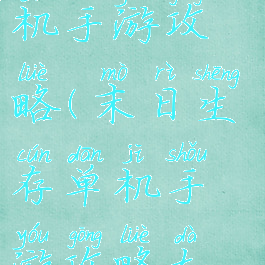 机手游攻
lüè mò rì shēng
略(末日生
cún dān jī shǒu
存单机手
yóu gōng lüè dà
游攻略大